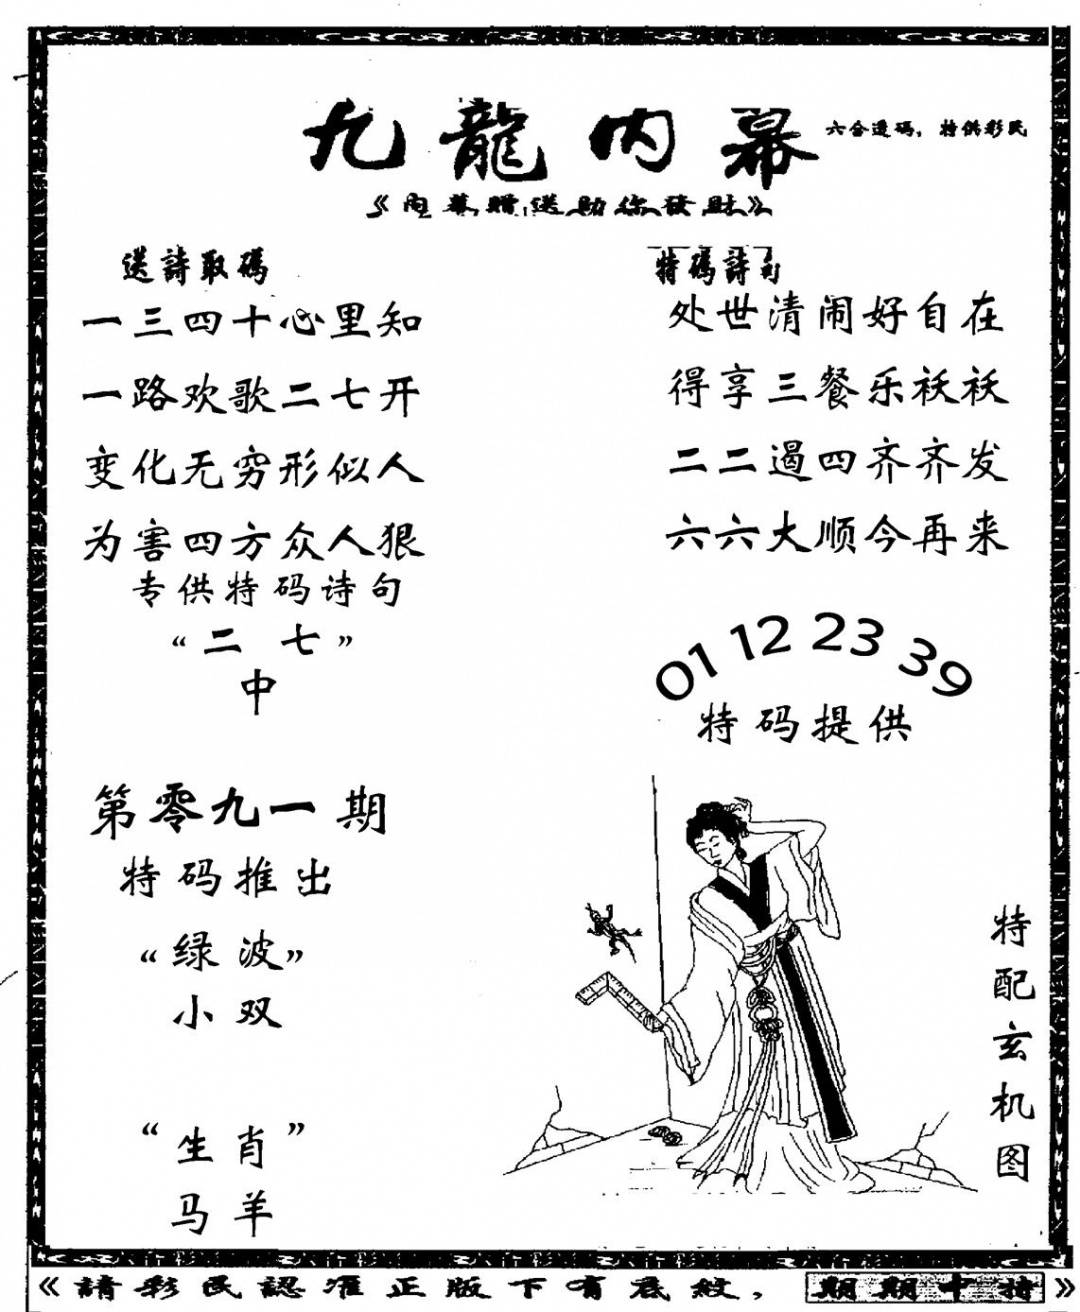 九龍内幕
六合透码，特供彩民
《内幕赠送助你發財》
送詩取碼
一三四十心里知
一路欢歌二七开
变化无穷形似人
为害四方众人狠
专供特码诗句
“二 七”
中
第零九一期
特码推出
“绿波”
小双
“生肖”
马羊
特碼詩句
处世清闹好自在
得享三餐乐袄袄
二二遏四齐齐发
六六大顺今再来
01 12 23 39
特码提供
特配玄机图
《請彩民認准正版下有底紋，期期中特》